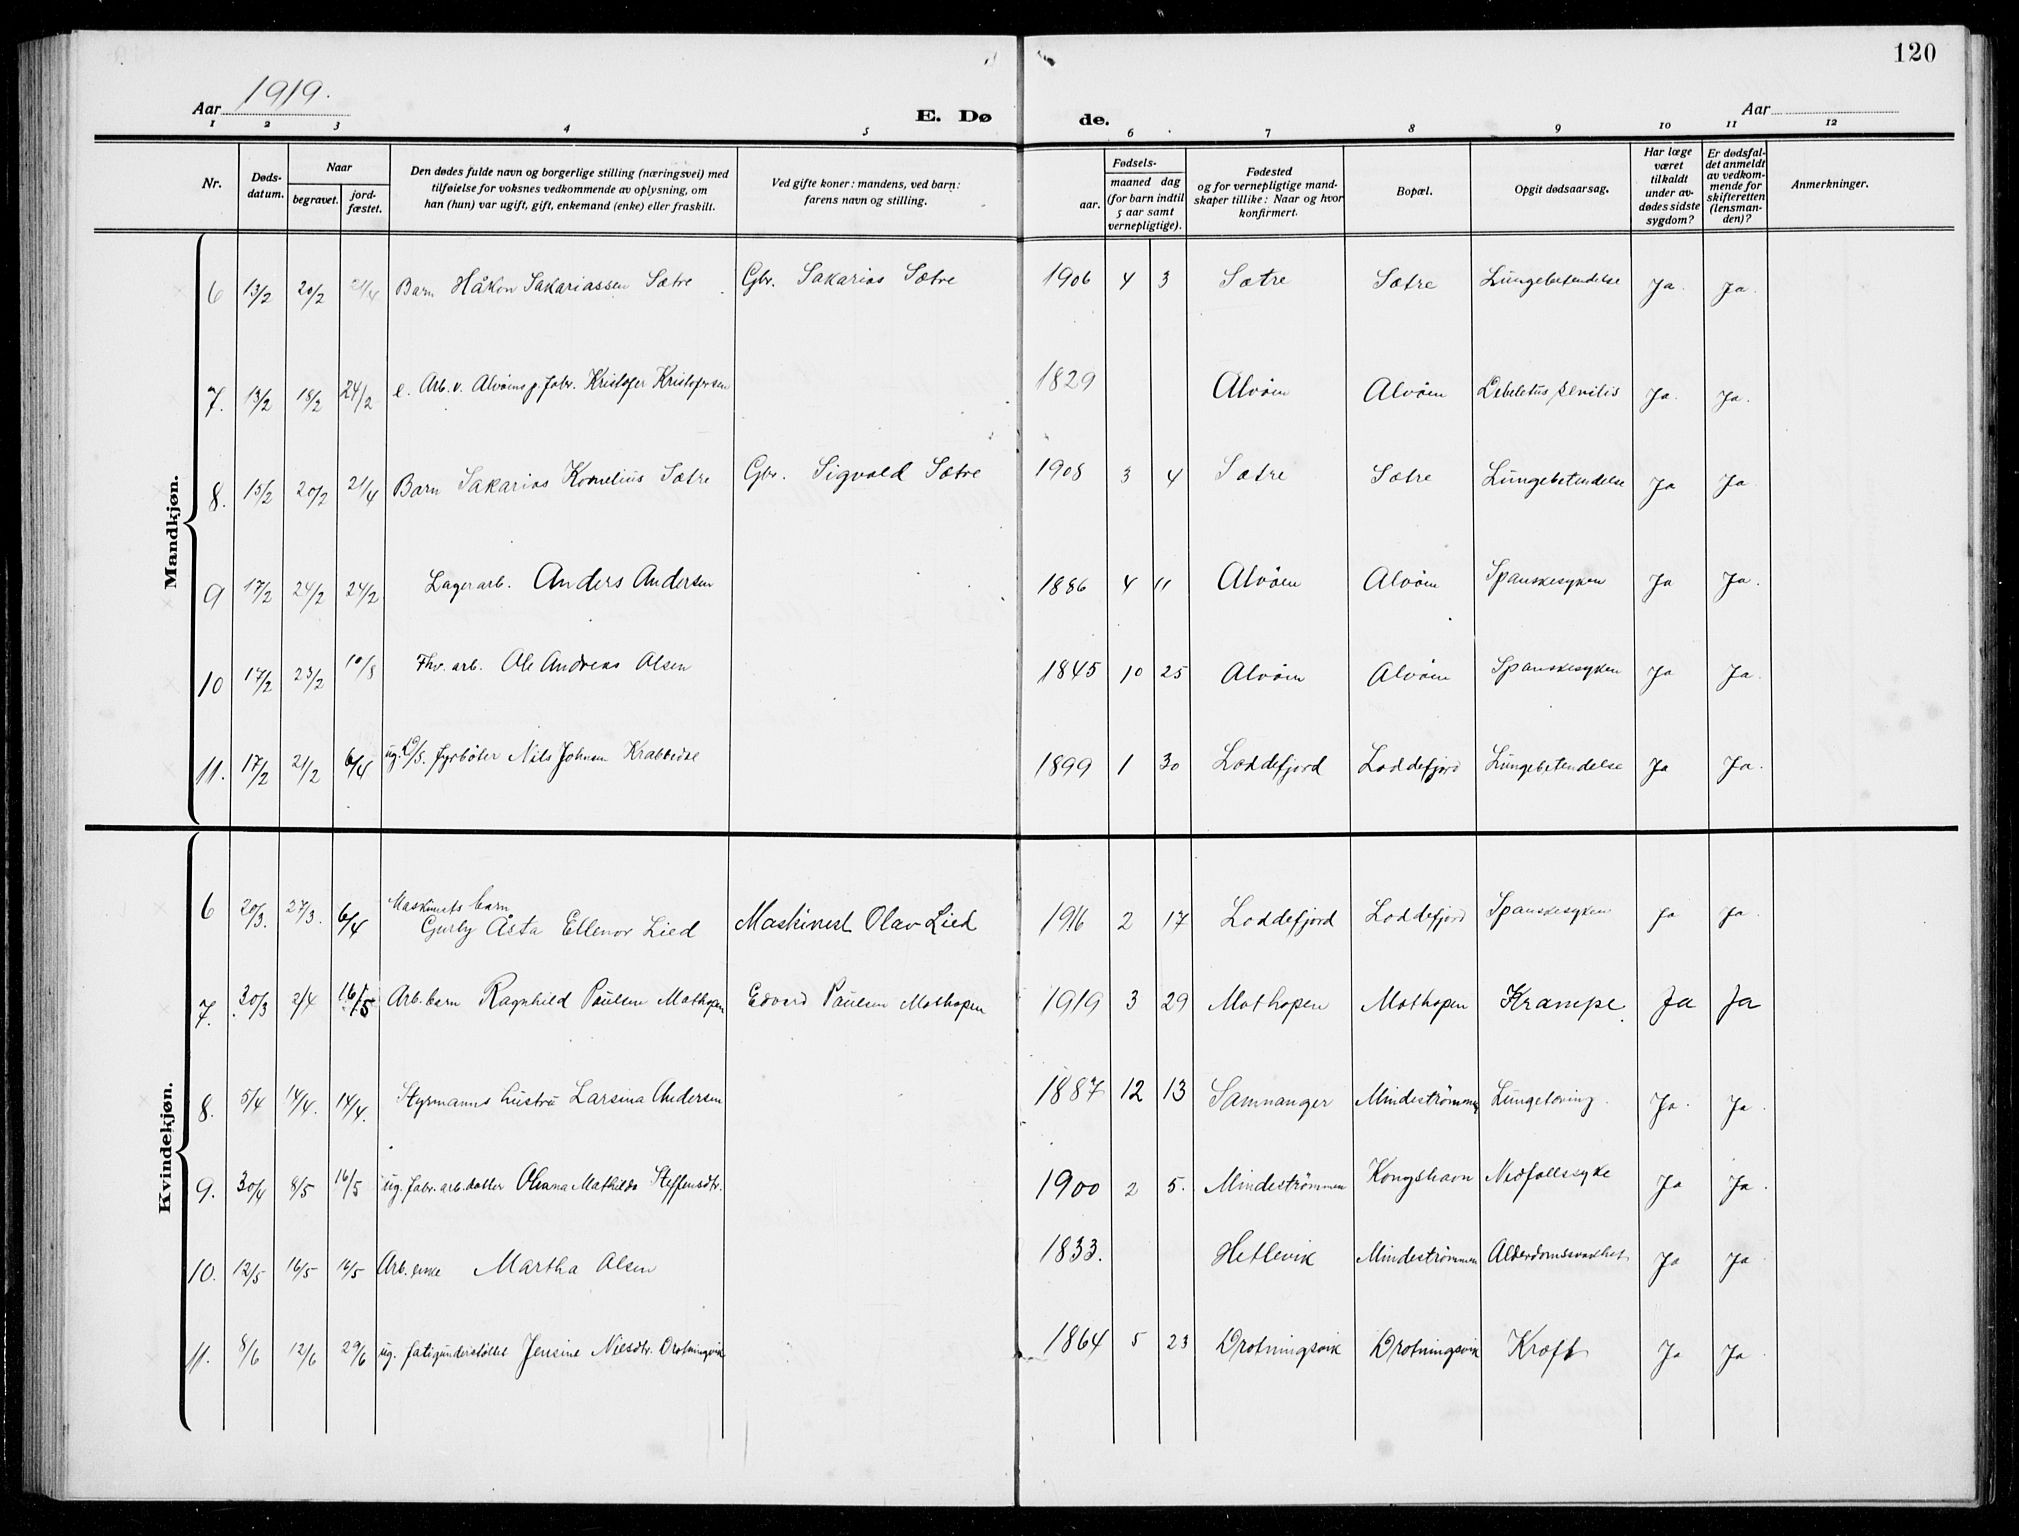 120
Aar 1919.
E. Dø de.
Aar
1 2 3 4 5 6 7 8 9 10 11 12
Nr.
Døds-
datum.
Naar
begravet.
jord-
fæstet.
Den dødes fulde navn og borgerlige stilling (næringsvei) med
tilføielse for voksnes vedkommende av oplysning, om
han (hun) var ugift, gift, enkemand (enke) eller fraskilt.
Ved gifte koner: mandens, ved barn:
farens navn og stilling.
Fødsels-
aar.
maaned dag
(for barn indtil
5 aar samt
vernepligtige).
Fødested
og for vernepligtige mand-
skaper tillike: Naar og hvor
konfirmert.
Bopæl.
Opgit dødsaarsag.
Har læge
været
tilkaldt
under av-
dødes sidste
sygdom?
Er dødsfal-
det anmeldt
av vedkom-
mende for
skifteretten
(lensman-
den)?
Anmerkninger.
Mandkjøn.
6 13/2 20/2 21/4 Barn Håkon Sakariassen Sætre Gbr. Sakarias Sætre 1906 4 3 Sætre Sætre Lungebetendelse Ja. Ja.
7. 13/2 18/2 24/2 e. Arb. v. Alvøens p. fabr. Kristofer Kristofersen 1829 Alvøen Alvøen Ja. Ja.
8. 15/2 20/2 21/4 Barn Sakarias Kornelius Sætre Gbr. Sigvald Sætre 1908 3 4 Sætre Sætre Lungebetendelse Ja Ja.
9 17/2 24/2 24/2 Lagerarb. Anders Andersen 1886 4 11 Alvøen Alvøen Spanskesyken Ja Ja.
10 17/2 23/2 10/8 Fhv. arb. Ole Andreas Olsen 1845 10 25 Alvøen Alvøen Spanskesyken Ja Ja.
11. 17/2 21/2 6/4 ug. fyrbøter Nils Johnsen 1899 1 30 Loddefjord Loddefjord Lungebetendelse Ja Ja.
Kvindekjøn.
6 20/3. 27/3. 6/4 Maskinists barn
Gerly Åsta Ellenor Lied Maskinest Olav Lied 1916 2 17 Loddefjord Loddefjord Spanskesyken Ja Ja.
7. 30/3 2/4 16/5 Arb. barn Ragnhild Paulsen Mathopen Edvard Paulsen Mathopen 1919 3 29 Mathopen Mathopen Krampe. Ja Ja
8. 5/4 14/4. 14/4. Styrmanns hustru Larsina Andersen 1887 12 13 Samnanger Mindestrømmen Lungetæring. Ja. Ja.
9. 30/4 8/5 16/5 ug. fabr. arb. datter Olianna Mathilda Steffensdtr. 1900 2 5. Mindestrømmen Kongshavn Nedfallssyke Ja Ja.
10. 12/5 16/5 16/5 Arb. enke Martha Olsen 1833. Hetlevik Mindestrømmen Alderdomssvakhet Ja Ja.
11. 8/6 12/6 29/6 ug. fatigunderstøttet Jensine Nilsdtr. Drotningsvik 1864 5 23 Drotningsvik Drotningsvik Kræft Ja Ja.